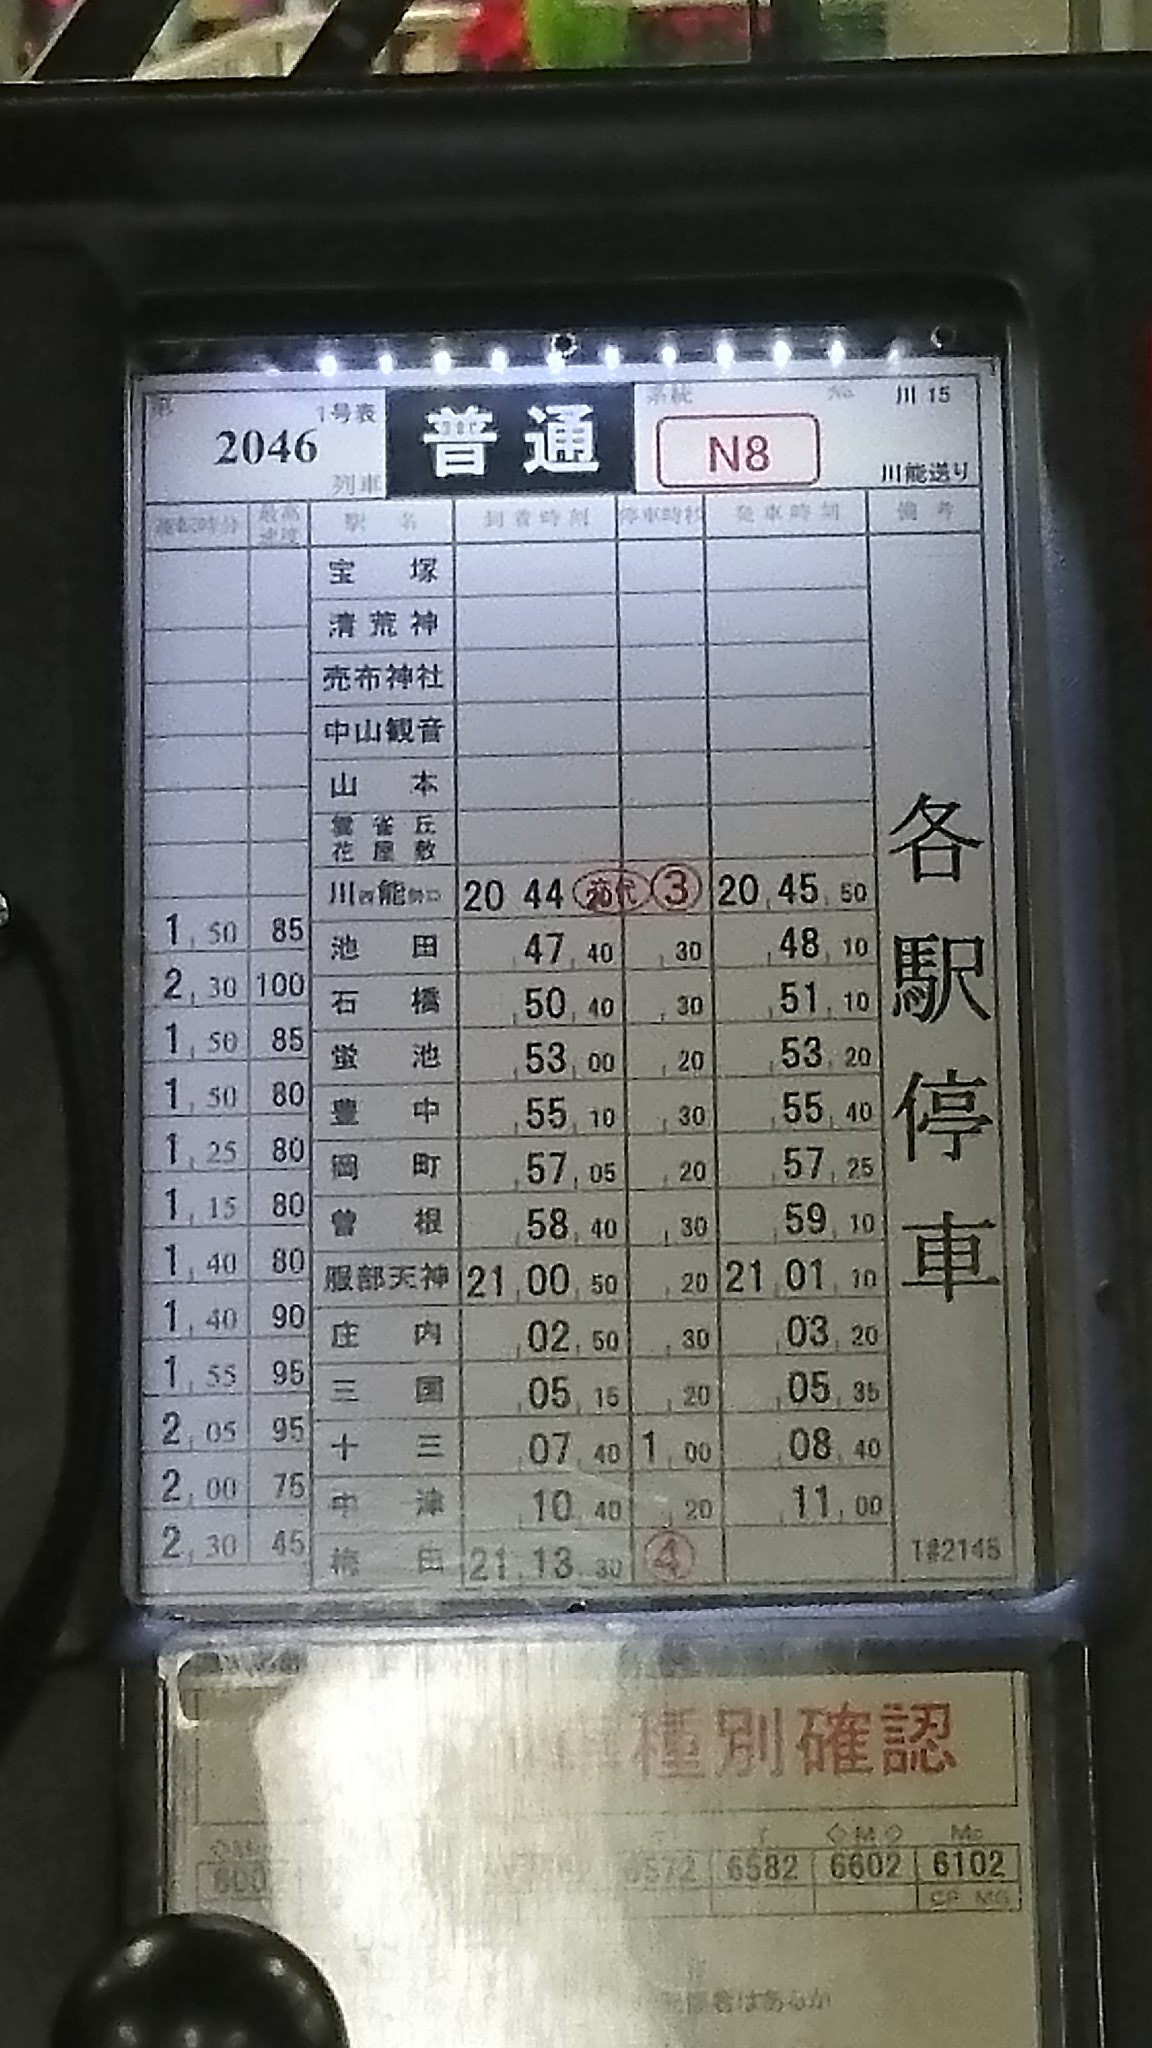 第 1号表 普通 系統 No 川 15
2046 N8
列車 川能送り
運転時分 最高速度 駅名 到着時刻 停車時秒 発車時刻 備考
宝塚
清荒神
売布神社
中山観音
山本
雲雀丘
花屋敷
川西能勢口 20 44 ③ 20 45 50
1 50 85
池田 47 40 30 48 10
2 30 100
石橋 50 40 30 51 10
1 50 85
蛍池 53 00 20 53 20
1 50 80
豊中 55 10 30 55 40
1 25 80
岡町 57 05 20 57 25
1 15 80
曽根 58 40 30 59 10
1 40 80
服部天神 21 00 50 20 21 01 10
1 40 90
庄内 02 50 30 03 20
1 55 95
三国 05 15 20 05 35
2 05 95
十三 07 40 1 00 08 40
2 00 75
中津 10 40 20 11 00
2 30 45
梅田 21 13 30 ④
各駅停車
種別確認
M Mc
6572 6582 6602 6102
CP MG